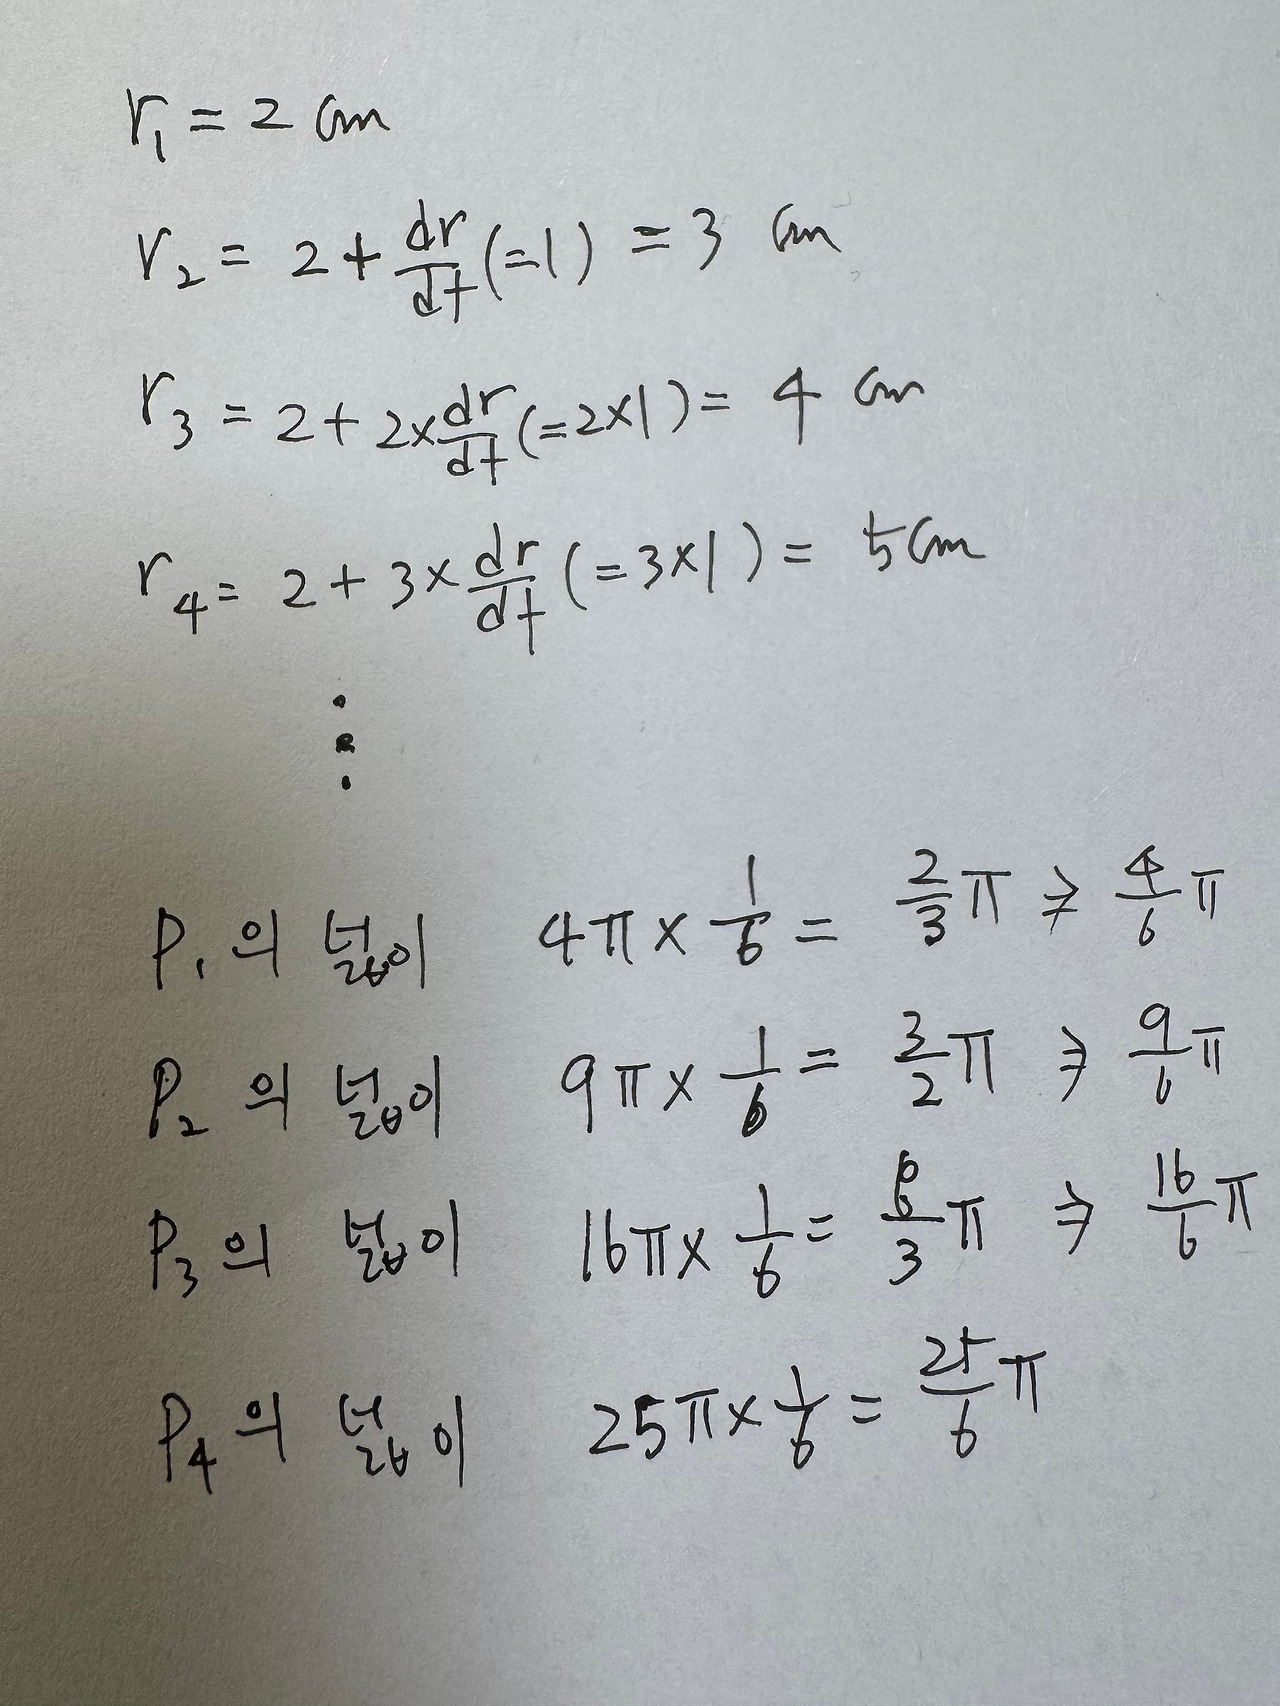 r₁ = 2 cm
r₂ = 2 + dr/dt (=1) = 3 cm
r₃ = 2 + 2× dr/dt (=2×1) = 4 cm
r₄ = 2 + 3× dr/dt (=3×1) = 5cm
⋮
P₁의 넓이 4π × 1/6 = 2/3 π ⇒ 4/6 π
P₂의 넓이 9π × 1/6 = 3/2 π ⇒ 9/6 π
P₃의 넓이 16π × 1/6 = 8/3 π ⇒ 16/6 π
P₄의 넓이 25π × 1/6 = 25/6 π